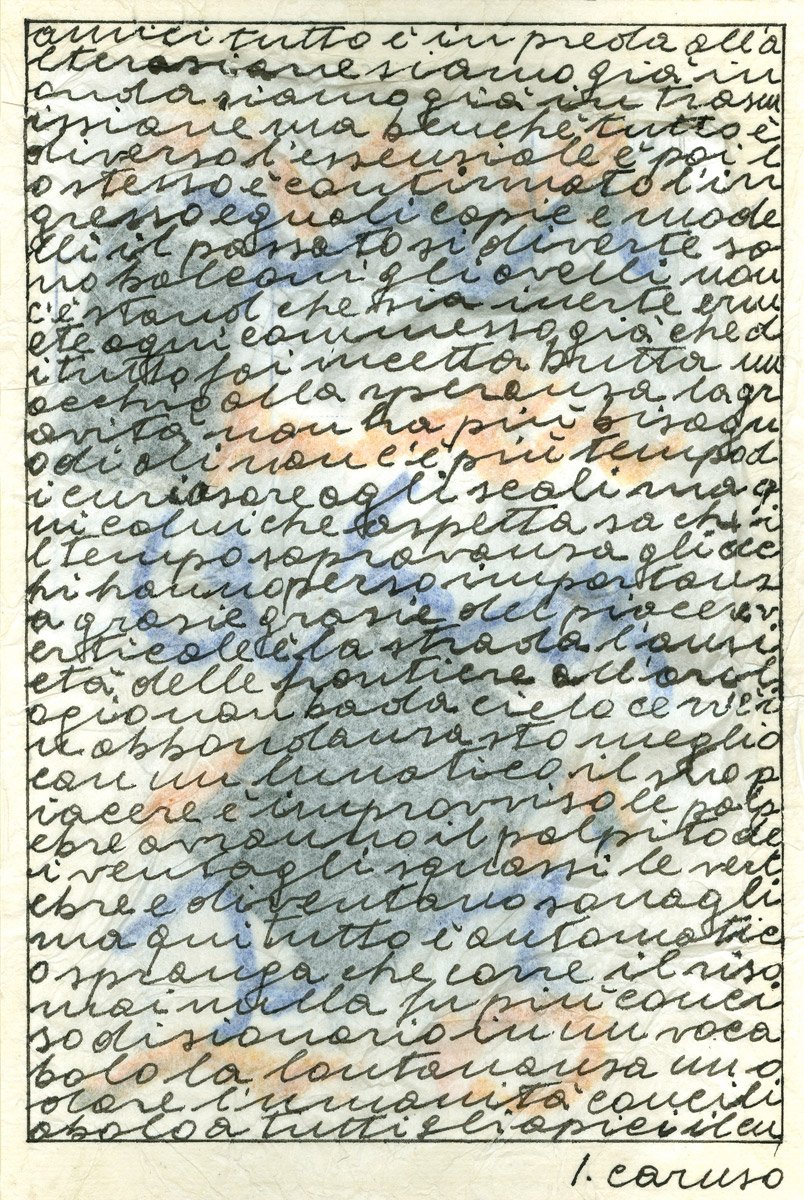 amici tutto è in preda all'a
lterazione siamo già in
onda siamo già in trasm
issione ma benchè tutto è
diverso l'essenziale è poi l
o stesso è continuato l'in
gresso eguali copie e mode
lli il passato si diverte so
no balconi gli avelli non
c'è stand che sia inerte erm
ete ogni commesso già che d
i tutto fai incetta butta un
occhio alla speranza la gr
avità non ha più bisogn
o di ali non c'è più tempo d
i curiosare agli scali ma q
ui colui che aspetta sa che i
l tempo sopravanza gli oc
chi hanno perso importanz
a grazie grazie del piacere v
erticale è la strada l'ansi
età delle frontiere all'orol
ogio non bada cielo ce n'è i
n abbondanza sto meglio
con un lunatico il
iacere è improvviso le palp
ebre avranno il palpito de
i ventagli squassi le vert
ebre e diventano sonagli
ma qui tutto è automatic
o spranga che corre il riso
mai nulla fu più conci
so dizionario in un voca
bolo la lontananza un o
dore l'umanità concili
abolo a tutti gli apici il cu
l. caruso